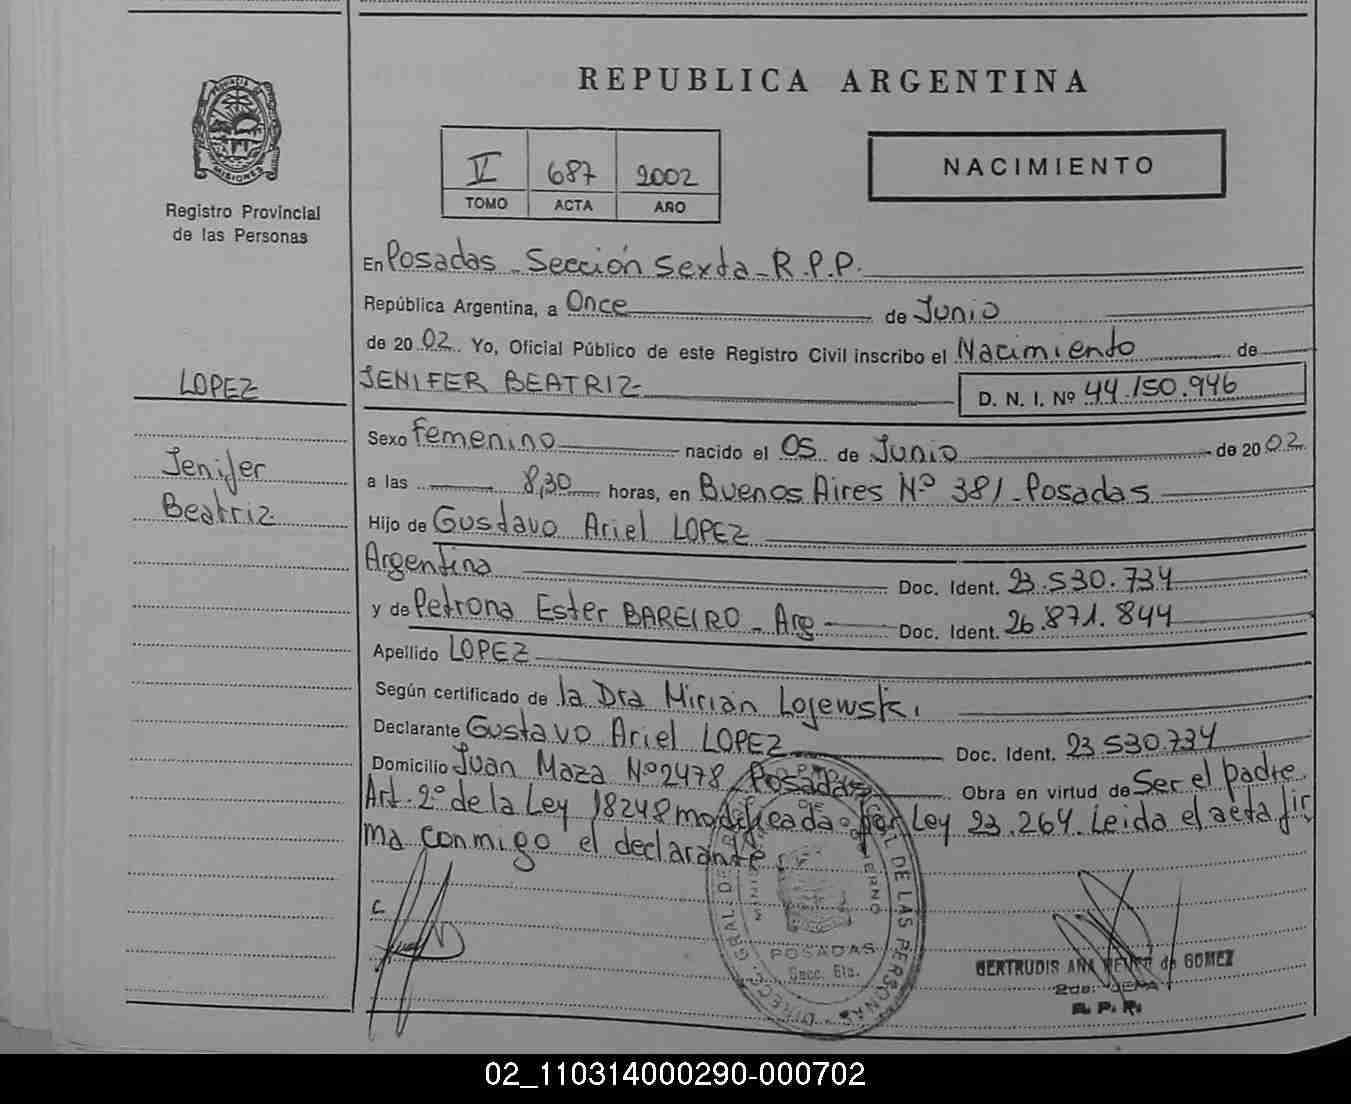 REPUBLICA ARGENTINA
NACIMIENTO
V 687 2002
TOMO ACTA AÑO
Registro Provincial
de las Personas
MISIONES
LOPEZ
Jenifer
Beatriz
En Posadas - Sección Sexta - R.P.P.
República Argentina, a Once de Junio
de 2002 Yo, Oficial Público de este Registro Civil inscribo el Nacimiento de
JENIFER BEATRIZ D. N. I. Nº 44.150.946
Sexo Femenino nacido el 05 de Junio de 2002
a las 8,30 horas, en Buenos Aires Nº 381 - Posadas
Hijo de Gustavo Ariel LOPEZ
Argentina Doc. Ident. 23.530.734
y de Petrona Ester BAREIRO - Arg Doc. Ident. 26.871.844
Apellido LOPEZ
Según certificado de la Dra Mirian Lojewski
Declarante Gustavo Ariel LOPEZ Doc. Ident. 23.530.734
Domicilio Juan Maza Nº 2478 Posadas Obra en virtud de Ser el padre
Art. 2º de la Ley 18248 modificada por Ley 23.264. Leida el acta fir
ma conmigo el declarante
DIRECC. GRAL. DE LAS PERSONAS
POSADAS
Secc. 6ta.
GERTRUDIS ANA de GOMEZ
2da. JEFA
R. P. P.
02_110314000290-000702